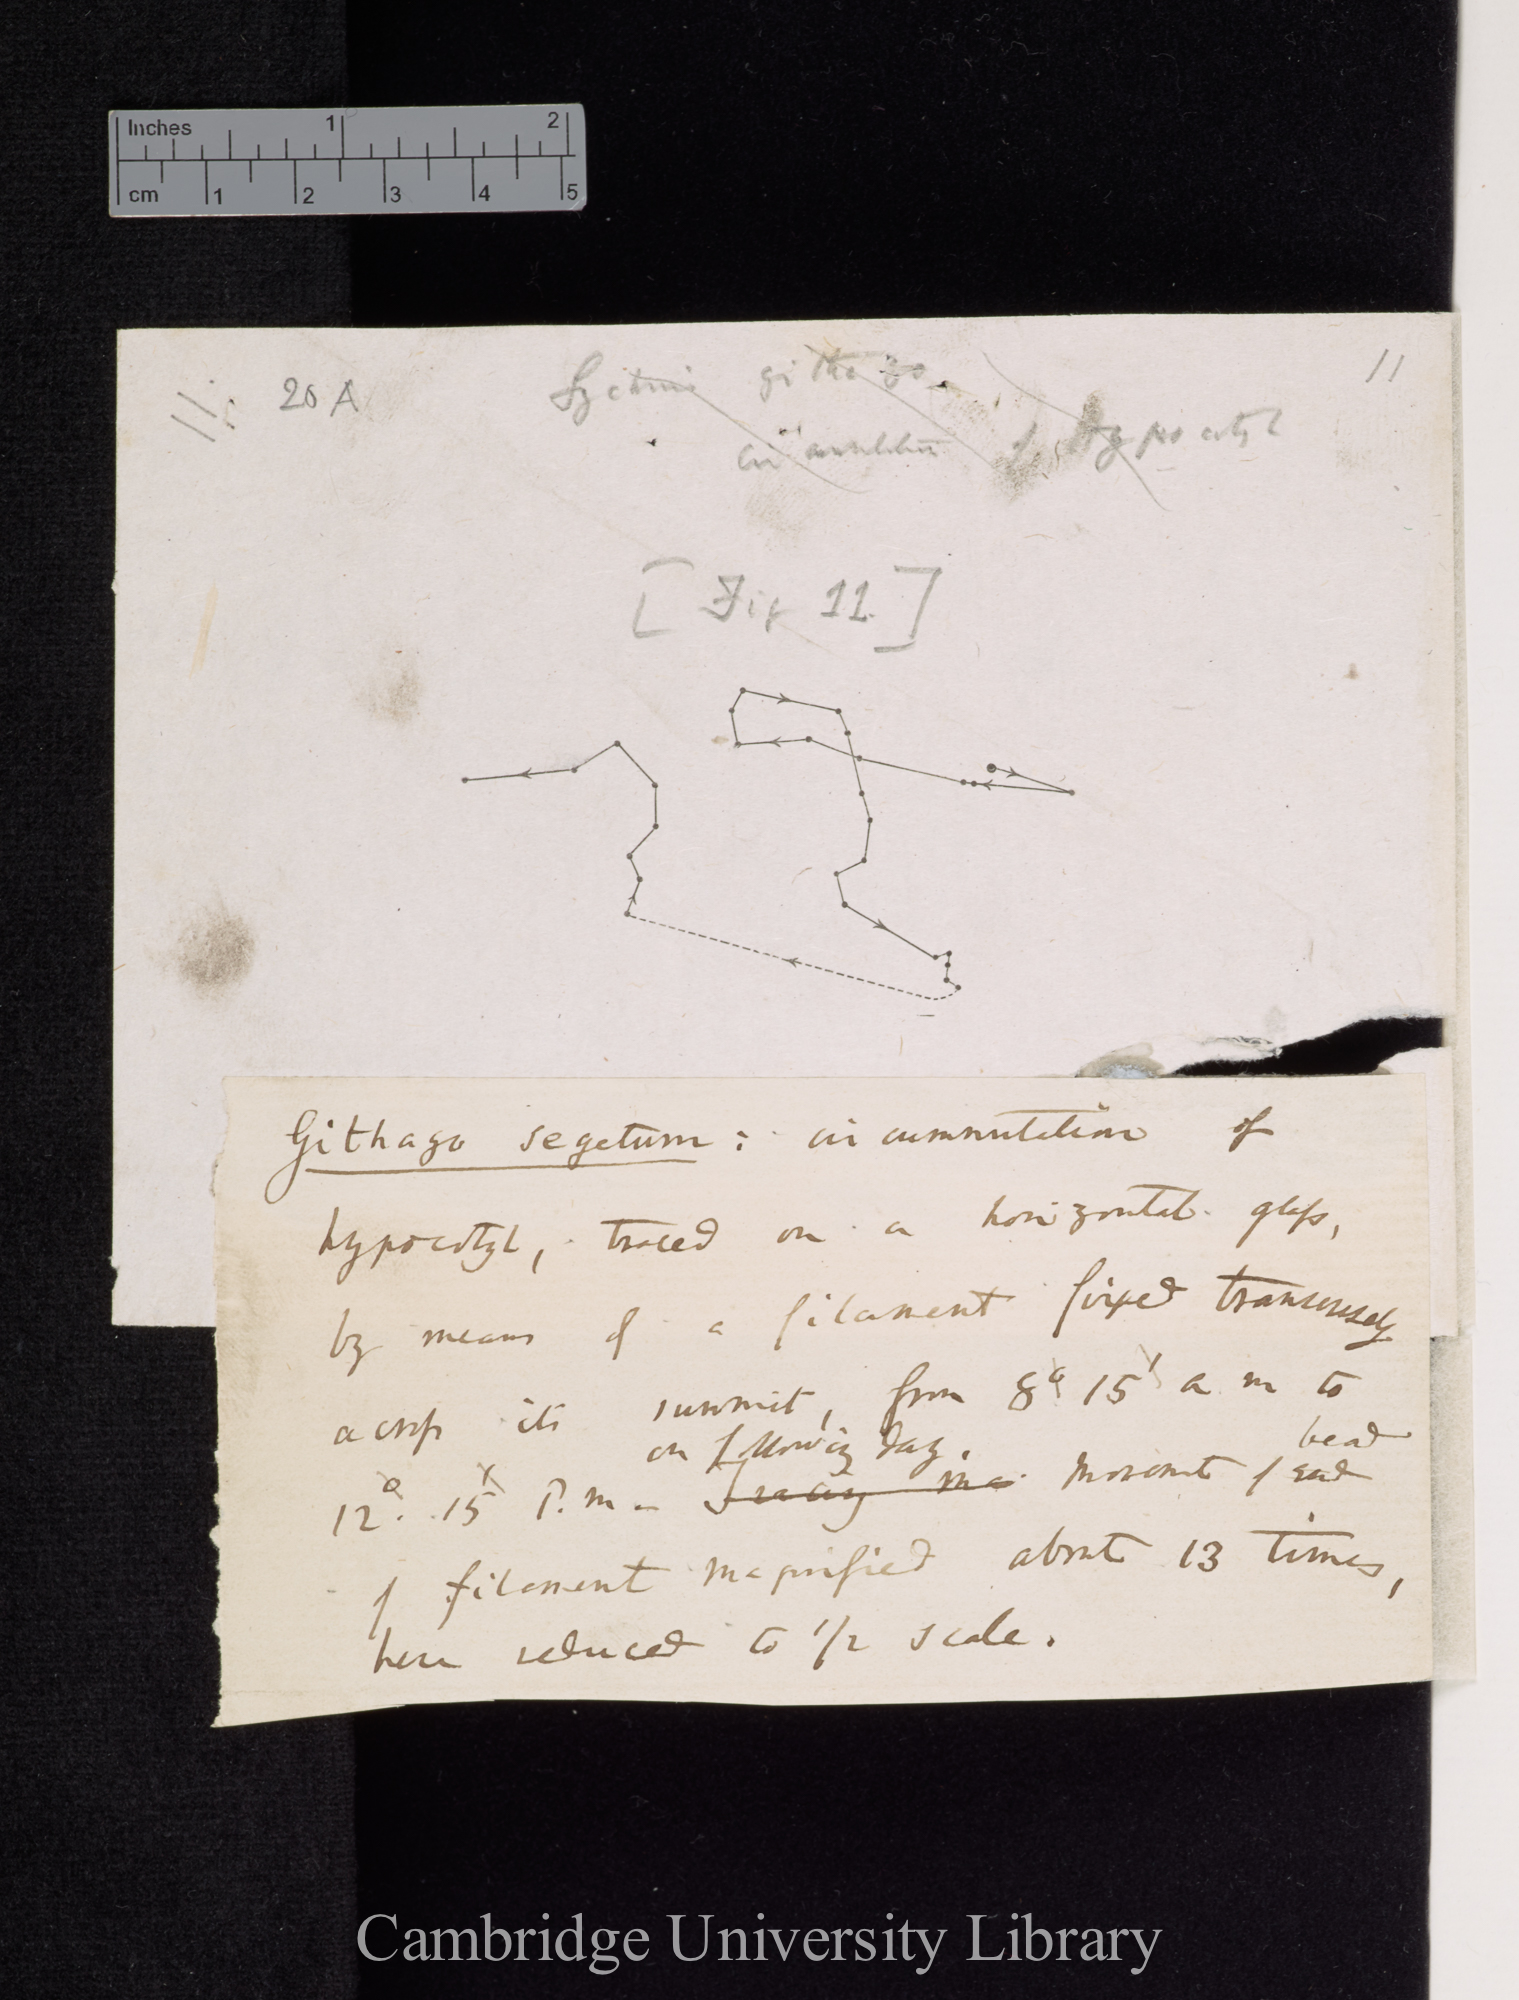 Inches 1 2
cm 1 2 3 4 5
11. 20 A
Lychnis githago
circumnutation of Hypocotyl
11
[Fig 11.]
Githago segetum: circumnutation of
hypocotyl, traced on a horizontal glass,
by means of a filament fixed transversely
across its summit, from 8° 15' a m to
12°. 15' P.m. on following day. Movement of bead
of filament magnified about 13 times,
here reduced to 1/2 scale.
Cambridge University Library